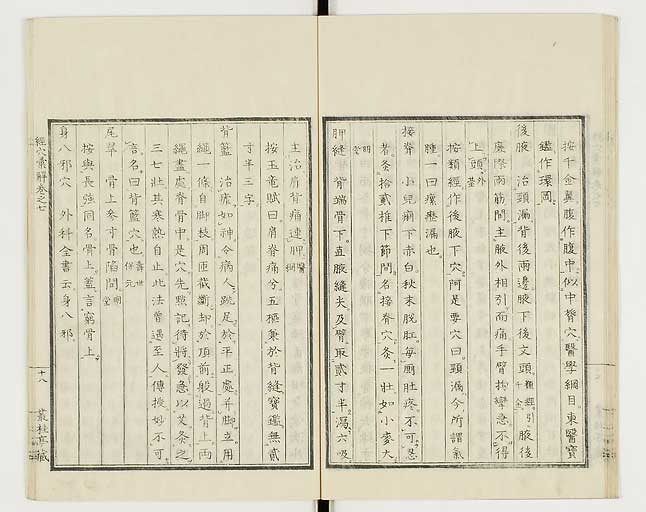 按千金翼腹作腹中似中脊穴醫學綱目東醫寶
鑑作環岡
後腋 治頭漏背後兩邊腋下後文頭 類經引千金 腋後
廉際兩筋間主腋外相引而痛手臂拘攣急不得
上頭 外臺
按類經作後腋下穴阿是要穴曰頸漏今所謂氣
腫一曰瘰癧漏也
接脊 小兒痢下赤白秋末脫肛每廁肚疼不可忍
者灸拾貳椎下節間名接脊穴灸一壯如小麥大
明堂
胛縫 背端骨下直腋縫尖及臂取貳寸半瀉六吸
主治肩背痛連胛 醫綱
按玉竜賦曰肩脊痛兮五樞兼於背縫寶鑑無貳
寸半三字
背籃 治瘧如神令病人跣足於平正處并脚立用
繩一條自脚板周匝截斷却於頂前般過背上兩
繩盡處脊骨中是穴先點記待將發急以艾灸之
三七壯其寒熱自止此法曾遇至人傳授妙不可
言名曰背籃穴也 壽世保元
尾翠 骨上參寸骨陷間 明堂
按與長強同名骨上蓋言窮骨上
身八邪穴 外科全書云身八邪
經穴彙解卷之七
十八
叢桂亭藏